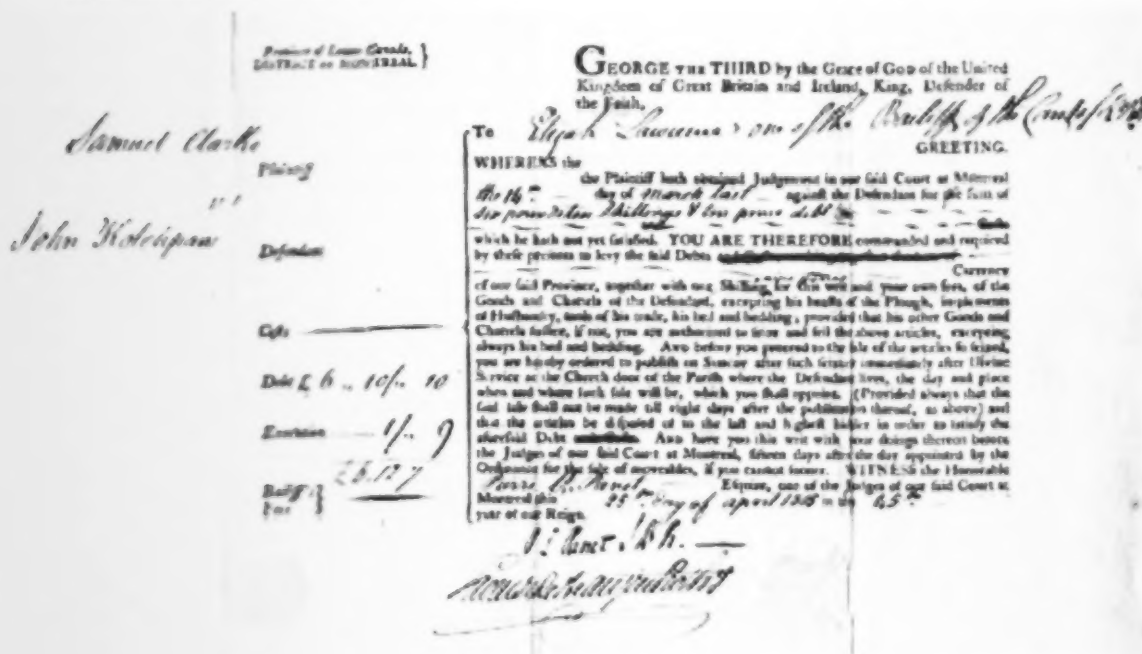 Province of Lower Canada,
DISTRICT OF MONTREAL. }
Samuel Clarke
Plaintiff
vs
John
Defendant
Costs
Debt £ 6 ,, 10/ ,, 10
Execution 1/ ,, 9
£ 6. 12. 7
Bailiff's
Fees }
GEORGE THE THIRD by the Grace of GOD of the United
Kingdom of Great Britain and Ireland, King, Defender of
the Faith,
To Elijah Lawrence one of the Bailiffs of the
GREETING.
WHEREAS the
the Plaintiff hath obtained Judgement in our said Court at Montreal
the 14th day of March last against the Defendant for the sum of
six pounds ten Shillings & ten pence debt
which he hath not yet satisfied. YOU ARE THEREFORE commanded and required
by these presents to levy the said Debts
Currency
of our said Province, together with one Shilling for this writ and your own fees, of the
Goods and Chattels of the Defendant, excepting his beasts of the Plough, implements
of Husbandry, tools of his trade, his bed and bedding, provided that his other Goods and
Chattels suffice, if not, you are authorised to seize and sell the above articles, excepting
always his bed and bedding. AND before you proceed to the sale of the articles so seized,
you are hereby ordered to publish on Sunday after such seizure immediately after Divine
Service at the Church door of the Parish where the Defendant lives, the day and place
when and where such sale will be, which you shall appoint. (Provided always that the
said sale shall not be made till eight days after the publication thereof, as above) and
that the articles be disposed of to the last and highest bidder in order to satisfy the
aforesaid Debt AND have you this writ with your doings thereon before
the Judges of our said Court at Montreal, fifteen days after the day appointed by the
Ordinance for the sale of moveables, if you cannot sooner. WITNESS the Honorable
Pierre L. Panet Esquire, one of the Judges of our said Court at
Montreal this 25th day of April 1805 in the 45th
year of our Reign.